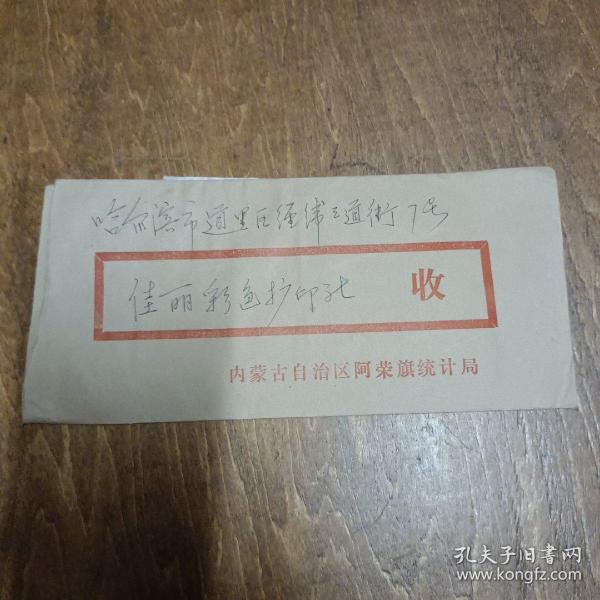 哈尔滨市道里区经纬三道街7号
佳丽彩色扩印社 收
内蒙古自治区阿荣旗统计局
孔夫子旧书网
www.kongfz.com